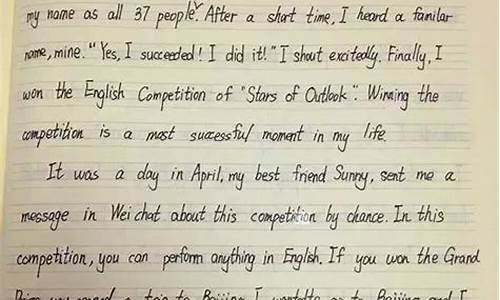 my name as all 37 people. After a short time, I heard a familar
name, mine. "Yes, I succeeded! I did it!" I shout excitedly. Finally, I
won the English Competition of "Stars of Outlook". Winning the
competition is a most successful moment in my life.
It was a day in April, my best friend Sunny, sent me a
message in Wei chat about this competition by chance. In this
competition, you can perform anything in English. If you won the Grand
a trip to Beijing I wanted to go to Beijing and I